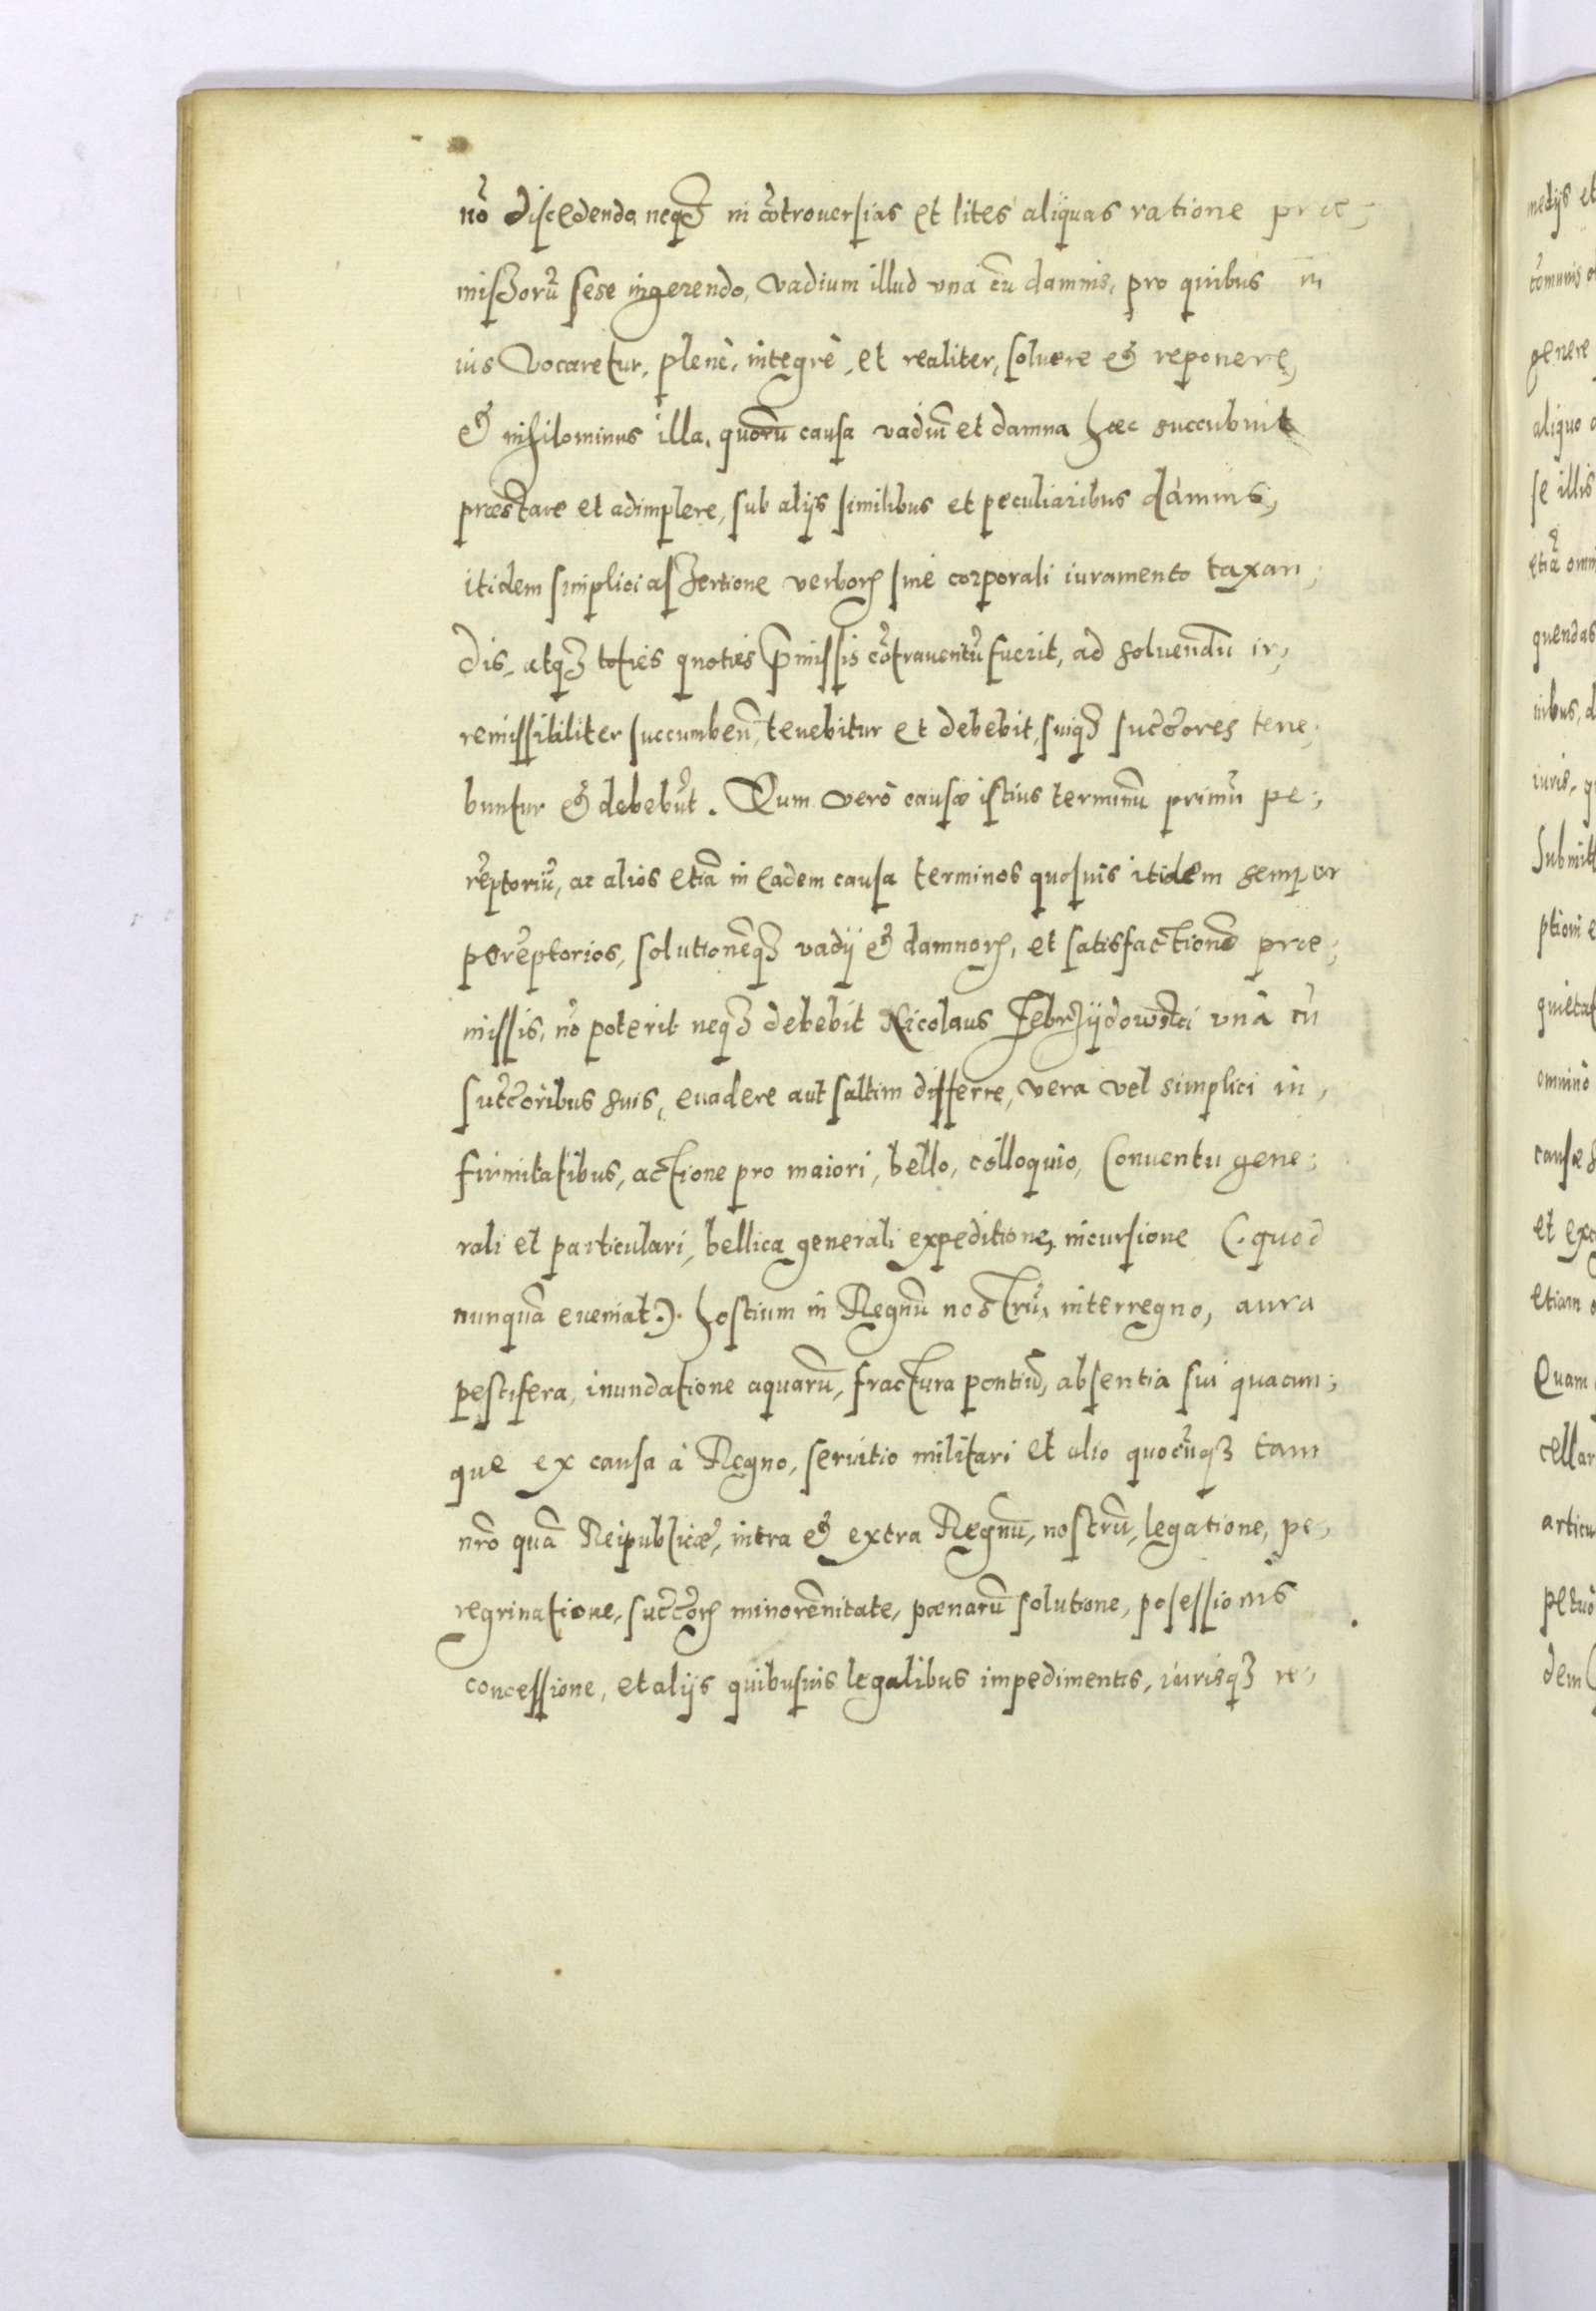 nõ discedendo neqз in cõtrouersias et lites aliquas ratione prae;
missorũ sese ingerendo, vadium illud vnà cũ damnis, pro quibus in
ius vocaretur, plenè, integrè, et realiter, soluere & reponere,
& nihilominus illa, quorũ causa vadiũ et damna haec succubuit
præstare et adimplere, sub alijs similibus et peculiaribus damnis,
itidem simplici assertione verborꝝ sine corporali iuramento taxan;
dis, atqз toties quoties p̄missis cõtrauentũ fuerit, ad soluendũ ir;
remissibiliter succumbeñ, tenebitur et debebit, suiqз succ̃ores tene;
buntur & debebũt. Quum verò causæ istius terminũ primũ pe;
rẽptoriũ, ac alios etiã in eadem causa terminos quosuis itidem semper
perẽptorios, solutionẽqз vadij & damnorꝝ, et satisfactionẽ prae;
missis, nõ poterit neqз debebit Nicolaus Zebrzijdowski vnà cũ
succ̃oribus suis, euadere aut saltim differre, vera vel simplici in;
firmitatibus, actione pro maiori, bello, colloquio, Conuentu gene;
rali et particulari, bellica generali expeditione, incursione (quod
nunquã eueniat) hostium in Regnũ nostrũ, interregno, aura
pestifera, inundatione aquarũ, fractura pontiũ, absentia sui quacun;
que ex causa à Regno, seruitio militari et alio quocũqз tam
nr̃o quã Reipublicæ, intra & extra Regnũ, nostrũ, legatione, pe;
regrinatione, succ̃orꝝ minorẽnitate, pœnarũ solutione, posessionis
concessione, et alijs quibusuis legalibus impedimentis, iurisqз re;
medijs et
genere
aliquo
se illis
etiã omn
quendas
iuris, q
Submit
ptioni e
quietat
omninò
causæ
et exc
etiam
Quam
cellar
articu
petuò
dem